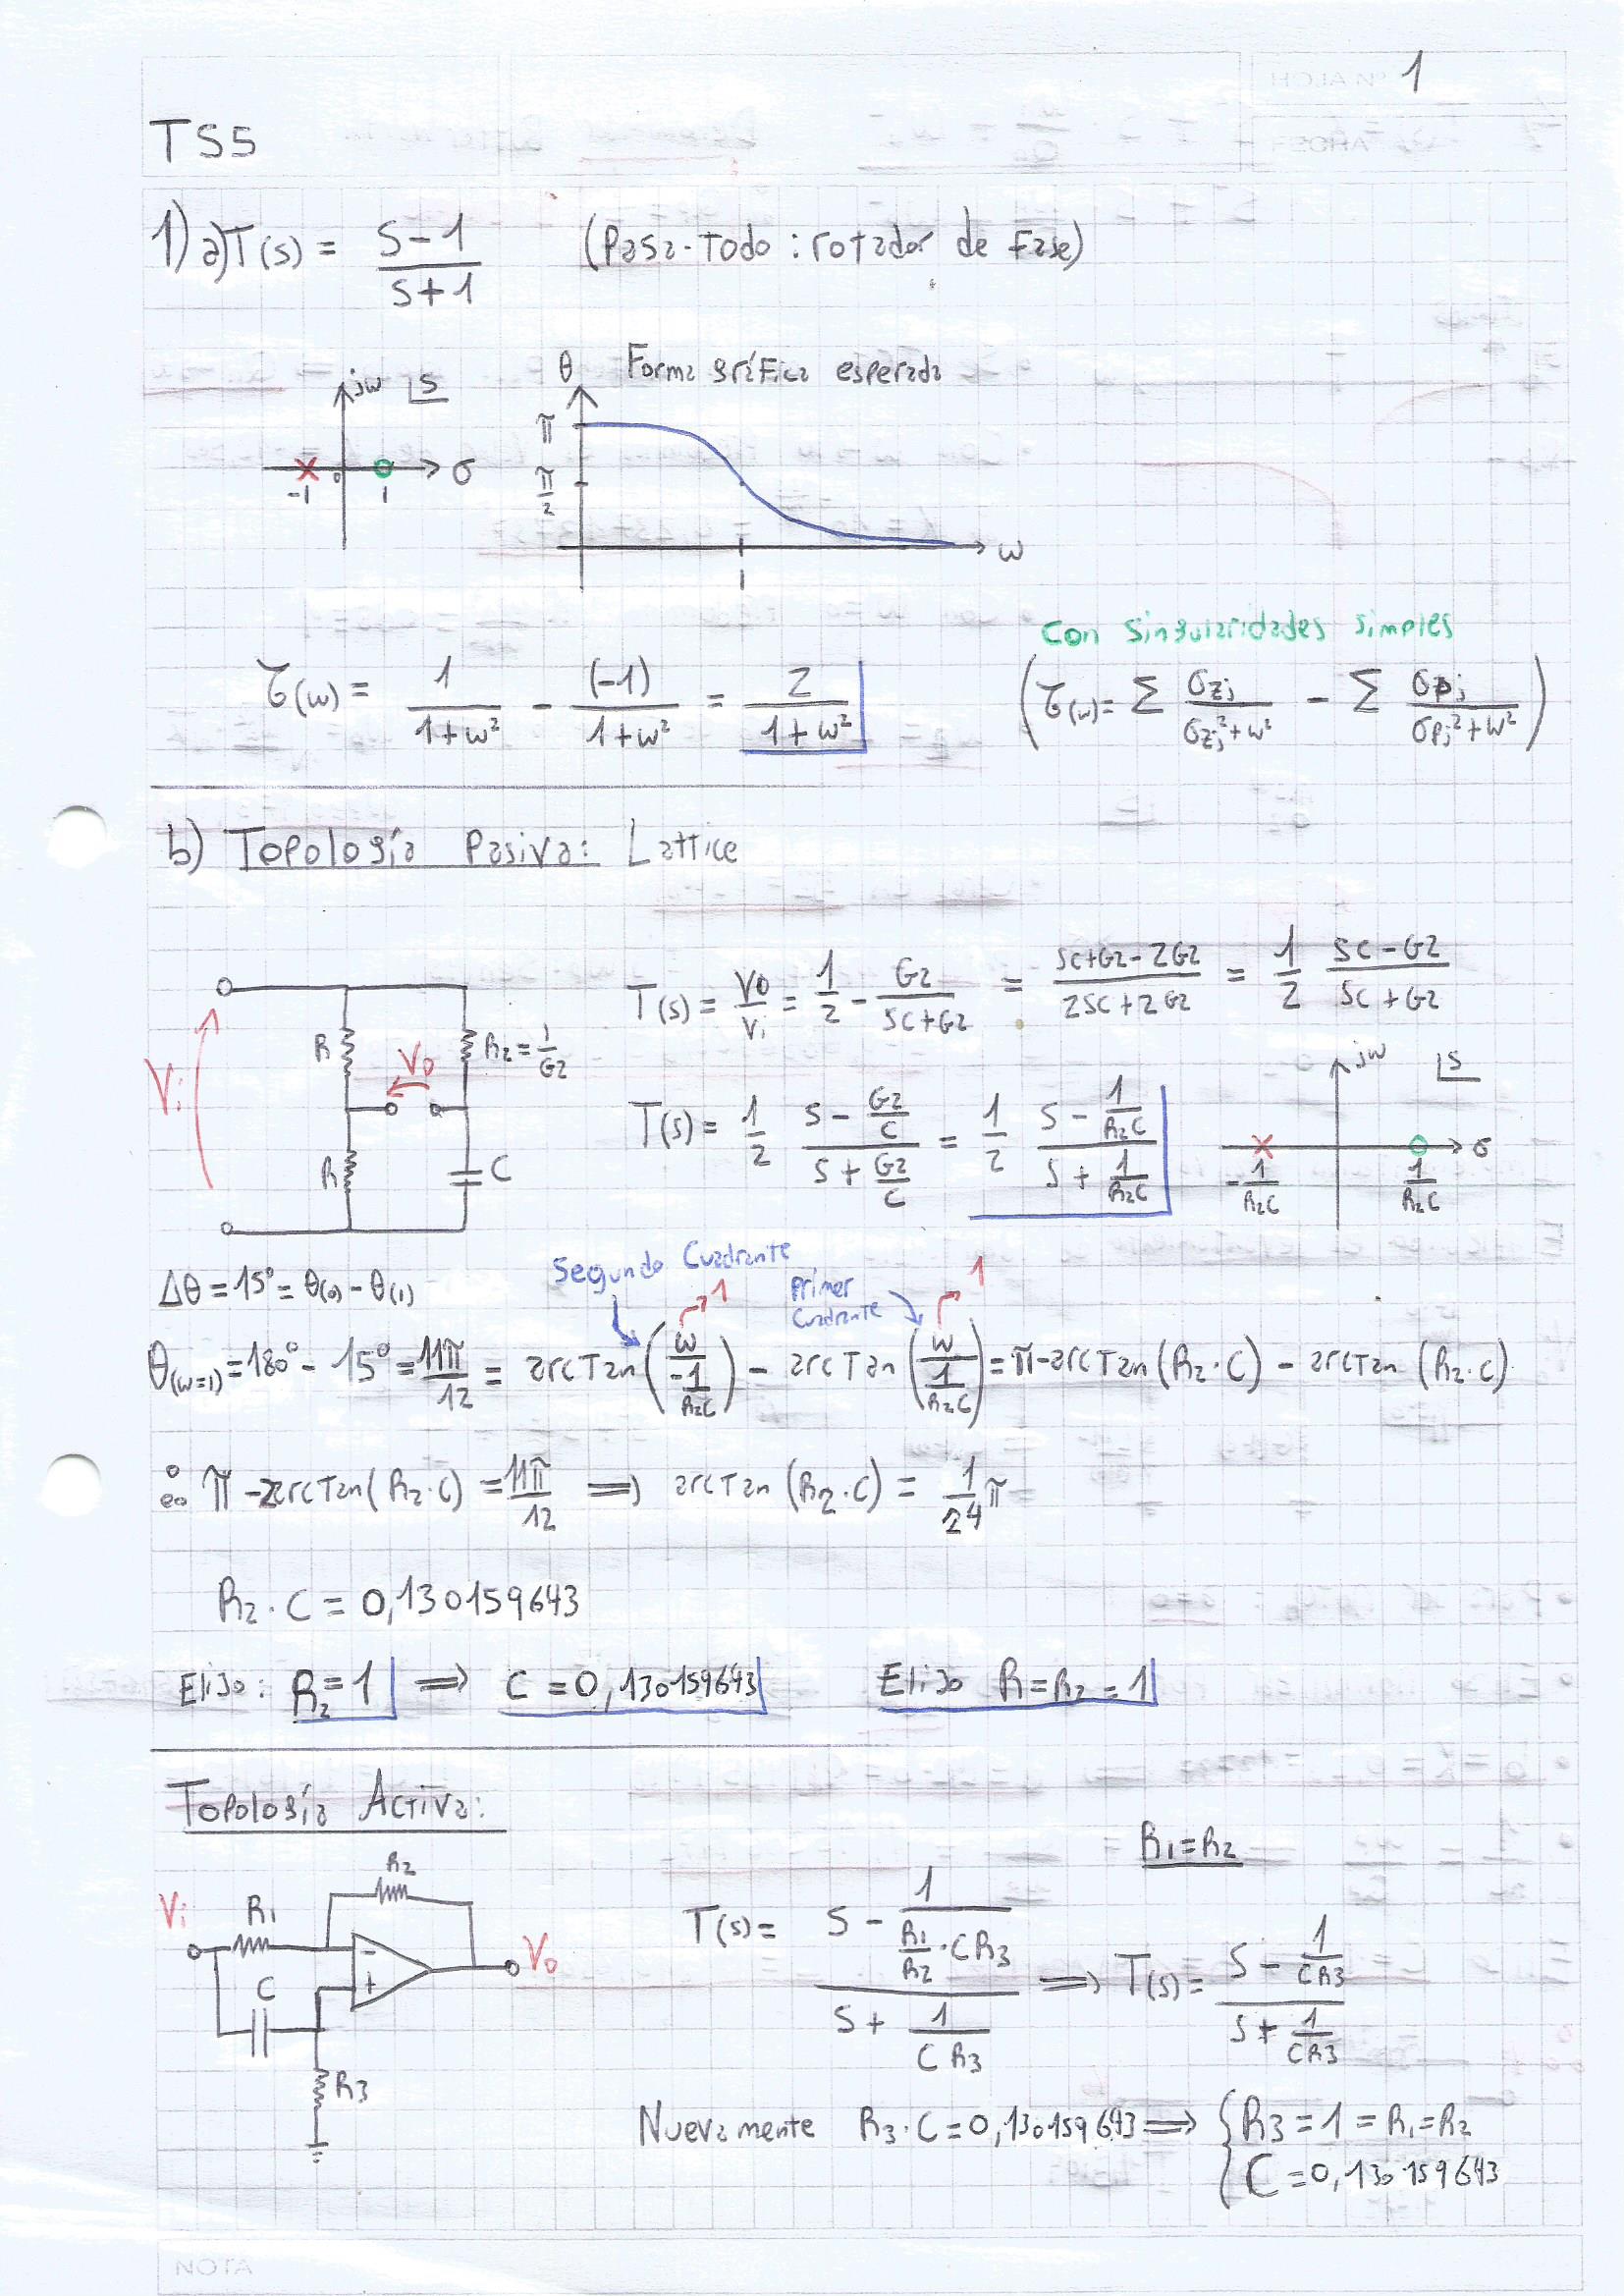 HOJA Nº 1
FECHA
TS5
1) a) T(s) = (s-1)/(s+1) (Pasa-Todo: rotador de Fase)
jω s
θ Forma gráfica esperada
π
-1 0 1 σ
π/2
1 ω
Con Singularidades simples
τ(ω) = 1/(1+ω²) - (-1)/(1+ω²) = 2/(1+ω²) (τ(ω) = Σ σzj/(σzj²+ω²) - Σ σpj/(σpj²+ω²))
b) Topología Pasiva: Lattice
T(s) = Vo/Vi = 1/2 - G2/(SC+G2) = (SC+G2-2G2)/(2SC+2G2) = 1/2 (SC-G2)/(SC+G2)
R R2 = 1/G2
Vi Vo
R C
T(s) = 1/2 (S - G2/C)/(S + G2/C) = 1/2 (S - 1/(R2C))/(S + 1/(R2C))
jω s
-1/(R2C) 1/(R2C) σ
Δθ = 15° = θ(0) - θ(1)
Segundo Cuadrante 1 Primer Cuadrante 1
θ(ω=1) = 180° - 15° = 11π/12 = arcTan(ω/(-1/(R2C))) - arcTan(ω/(1/(R2C))) = π - arcTan(R2·C) - arcTan(R2·C)
∴ π - 2arcTan(R2·C) = 11π/12 ⟹ arcTan(R2·C) = 1/24 π
R2·C = 0,130159643
Elijo: R2 = 1 ⟹ C = 0,130159643 Elijo R = R2 = 1
Topología Activa:
R1 = R2
R2
Vi R1 - Vo
C +
R3
T(s) = (S - 1/((R1/R2)·CR3))/(S + 1/(CR3)) ⟹ T(s) = (S - 1/(CR3))/(S + 1/(CR3))
Nuevamente R3·C = 0,130159643 ⟹ { R3 = 1 = R1 = R2
C = 0,130159643
NOTA